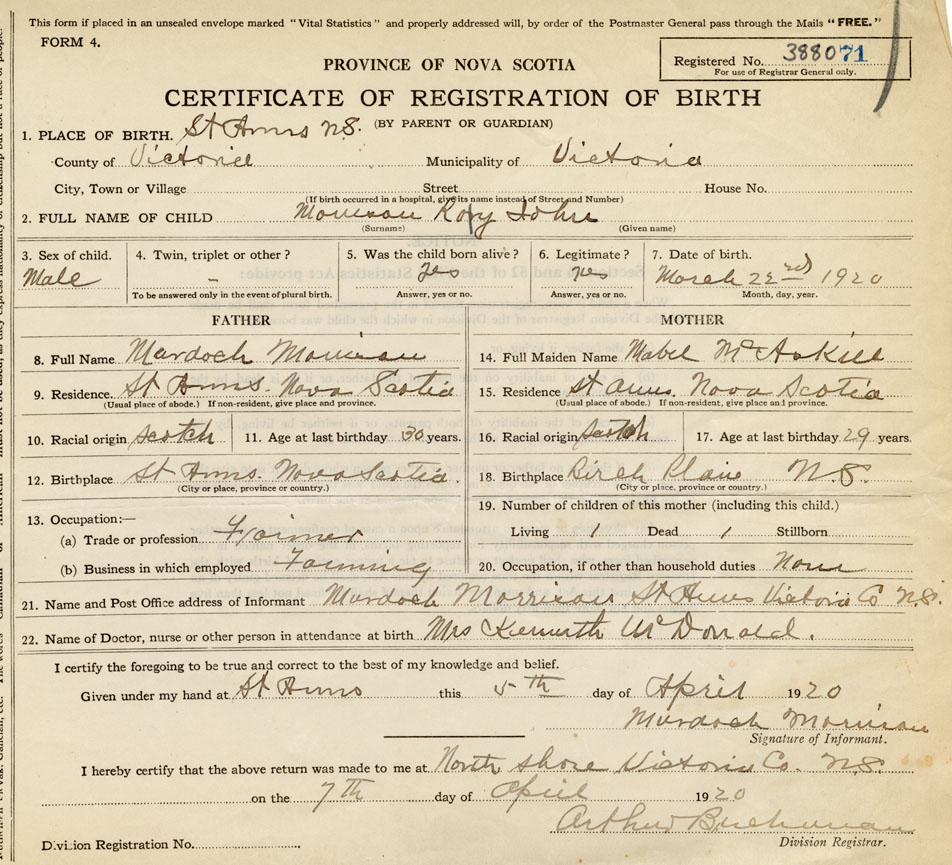 This form if placed in an unsealed envelope marked "Vital Statistics" and properly addressed will, by order of the Postmaster General pass through the Mails "FREE."
FORM 4.
Registered No. 388071
For use of Registrar General only.
PROVINCE OF NOVA SCOTIA
CERTIFICATE OF REGISTRATION OF BIRTH
(BY PARENT OR GUARDIAN)
1. PLACE OF BIRTH. St Anns N.S.
County of Victoria Municipality of Victoria
City, Town or Village Street House No.
(If birth occurred in a hospital, give its name instead of Street and Number)
2. FULL NAME OF CHILD Morrison Rory John
(Surname) (Given name)
3. Sex of child. 4. Twin, triplet or other? 5. Was the child born alive? 6. Legitimate? 7. Date of birth.
Male - yes yes March 22nd 1920
To be answered only in the event of plural birth. Answer, yes or no. Answer, yes or no. Month, day, year.
FATHER MOTHER
8. Full Name Murdoch Morrison 14. Full Maiden Name Mabel McAskill
9. Residence. St Anns. Nova Scotia 15. Residence St Anns Nova Scotia
(Usual place of abode.) If non-resident, give place and province. (Usual place of abode.) If non-resident, give place and province.
10. Racial origin Scotch 11. Age at last birthday 30 years. 16. Racial origin Scotch 17. Age at last birthday 29 years.
12. Birthplace St Anns. Nova Scotia. 18. Birthplace Birch Plain N.S.
(City or place, province or country.) (City or place, province or country.)
19. Number of children of this mother (including this child.)
13. Occupation:—
(a) Trade or profession Farmer Living 1 Dead 1 Stillborn
(b) Business in which employed Farming 20. Occupation, if other than household duties None
21. Name and Post Office address of Informant Murdoch Morrison St Anns Victoria Co N.S.
22. Name of Doctor, nurse or other person in attendance at birth Mrs Kenneth McDonald.
I certify the foregoing to be true and correct to the best of my knowledge and belief.
Given under my hand at St Anns this 5th day of April 1920
Murdoch Morrison
Signature of Informant.
I hereby certify that the above return was made to me at North Shore Victoria Co. N.S.
on the 7th day of April 1920
Arthur Buchanan
Division Registration No. Division Registrar.